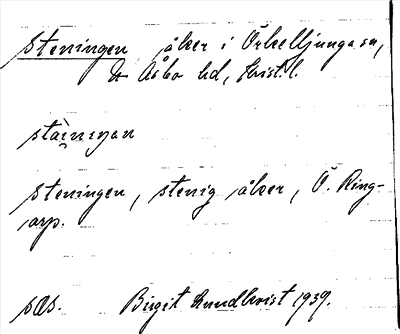 Steningen åker i Örkelljunga sn,
N Åsbo hd, Krist. l.
stäiningan
Steningen, stenig åker, Ö. Ring-
arp.
sas. Birgit Lundkvist 1939.